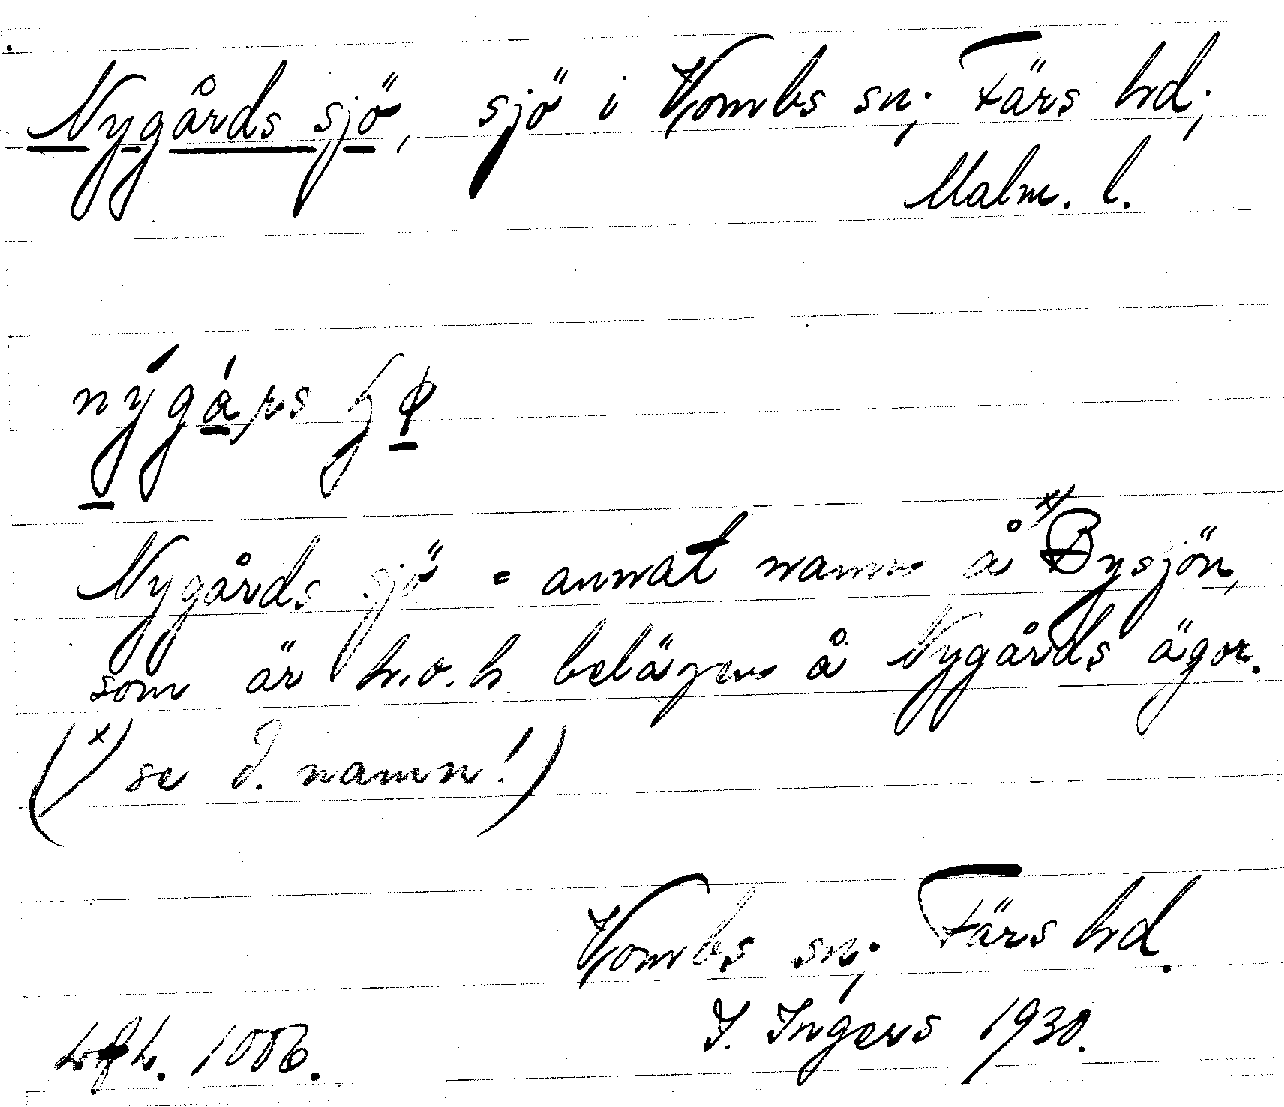 Nygårds sjö, sjö i Vombs sn; Färs hd;
Malm. l.
Nygårds sjö = annat namn å x) Bysjön,
som är h.o.h. belägen å Nygårds ägor.
(x) se d. namn!)
Vombs sn; Färs hd.
hft. 1006. I. Ingers 1930.